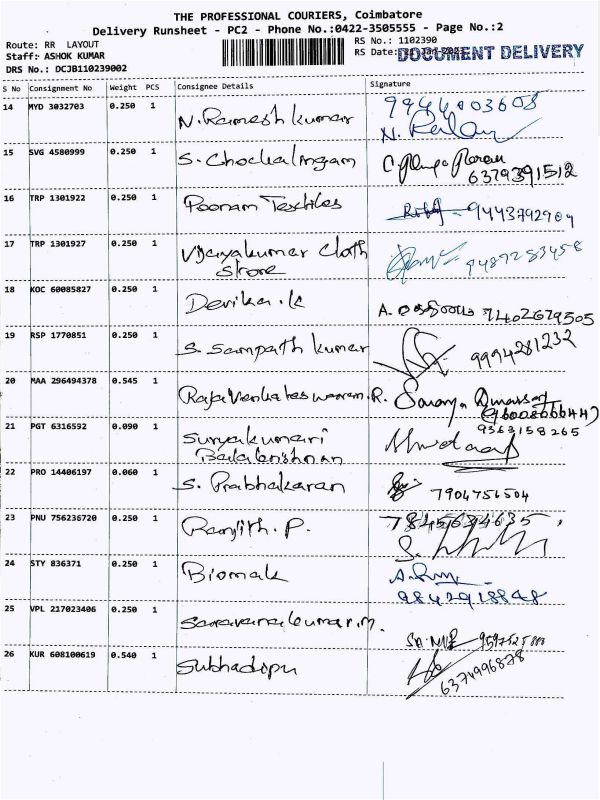 THE PROFESSIONAL COURIERS, Coimbatore
Delivery Runsheet - PC2 - Phone No.:0422-3505555 - Page No.:2
Route: RR LAYOUT
RS No.: 1102390
Staff: ASHOK KUMAR
RS Date:
DOCUMENT DELIVERY
DRS No.: DCJB110239002
S No Consignment No Weight PCS Consignee Details Signature
14 MYD 3032703 0.250 1 N. Ramesh kumar 9944003608
15 SVG 4580999 0.250 1 S. Chockalingam 6379391512
16 TRP 1301922 0.250 1 Poonam Textiles 9443792904
17 TRP 1301927 0.250 1 Vijayakumar Cloth 9487283458
Store
18 KOC 60085827 0.250 1 Devika .k A. 7402679505
19 RSP 1770851 0.250 1 S. Sampath kumar 9994281232
20 MAA 296494378 0.545 1 Rajavenkateswaaran.R.
21 PGT 6316592 0.090 1 Suryakumari 9363158265
Balakrishnan
22 PRO 14406197 0.060 1 S. Prabhakaran 7904756504
23 PNU 756236720 0.250 1 Ranjith. P. 7845634635
24 STY 836371 0.250 1 Biomak
9842918848
25 VPL 217023406 0.250 1 Saravanakumar.m.
26 KUR 608100619 0.540 1 Subhadopu 6374996878